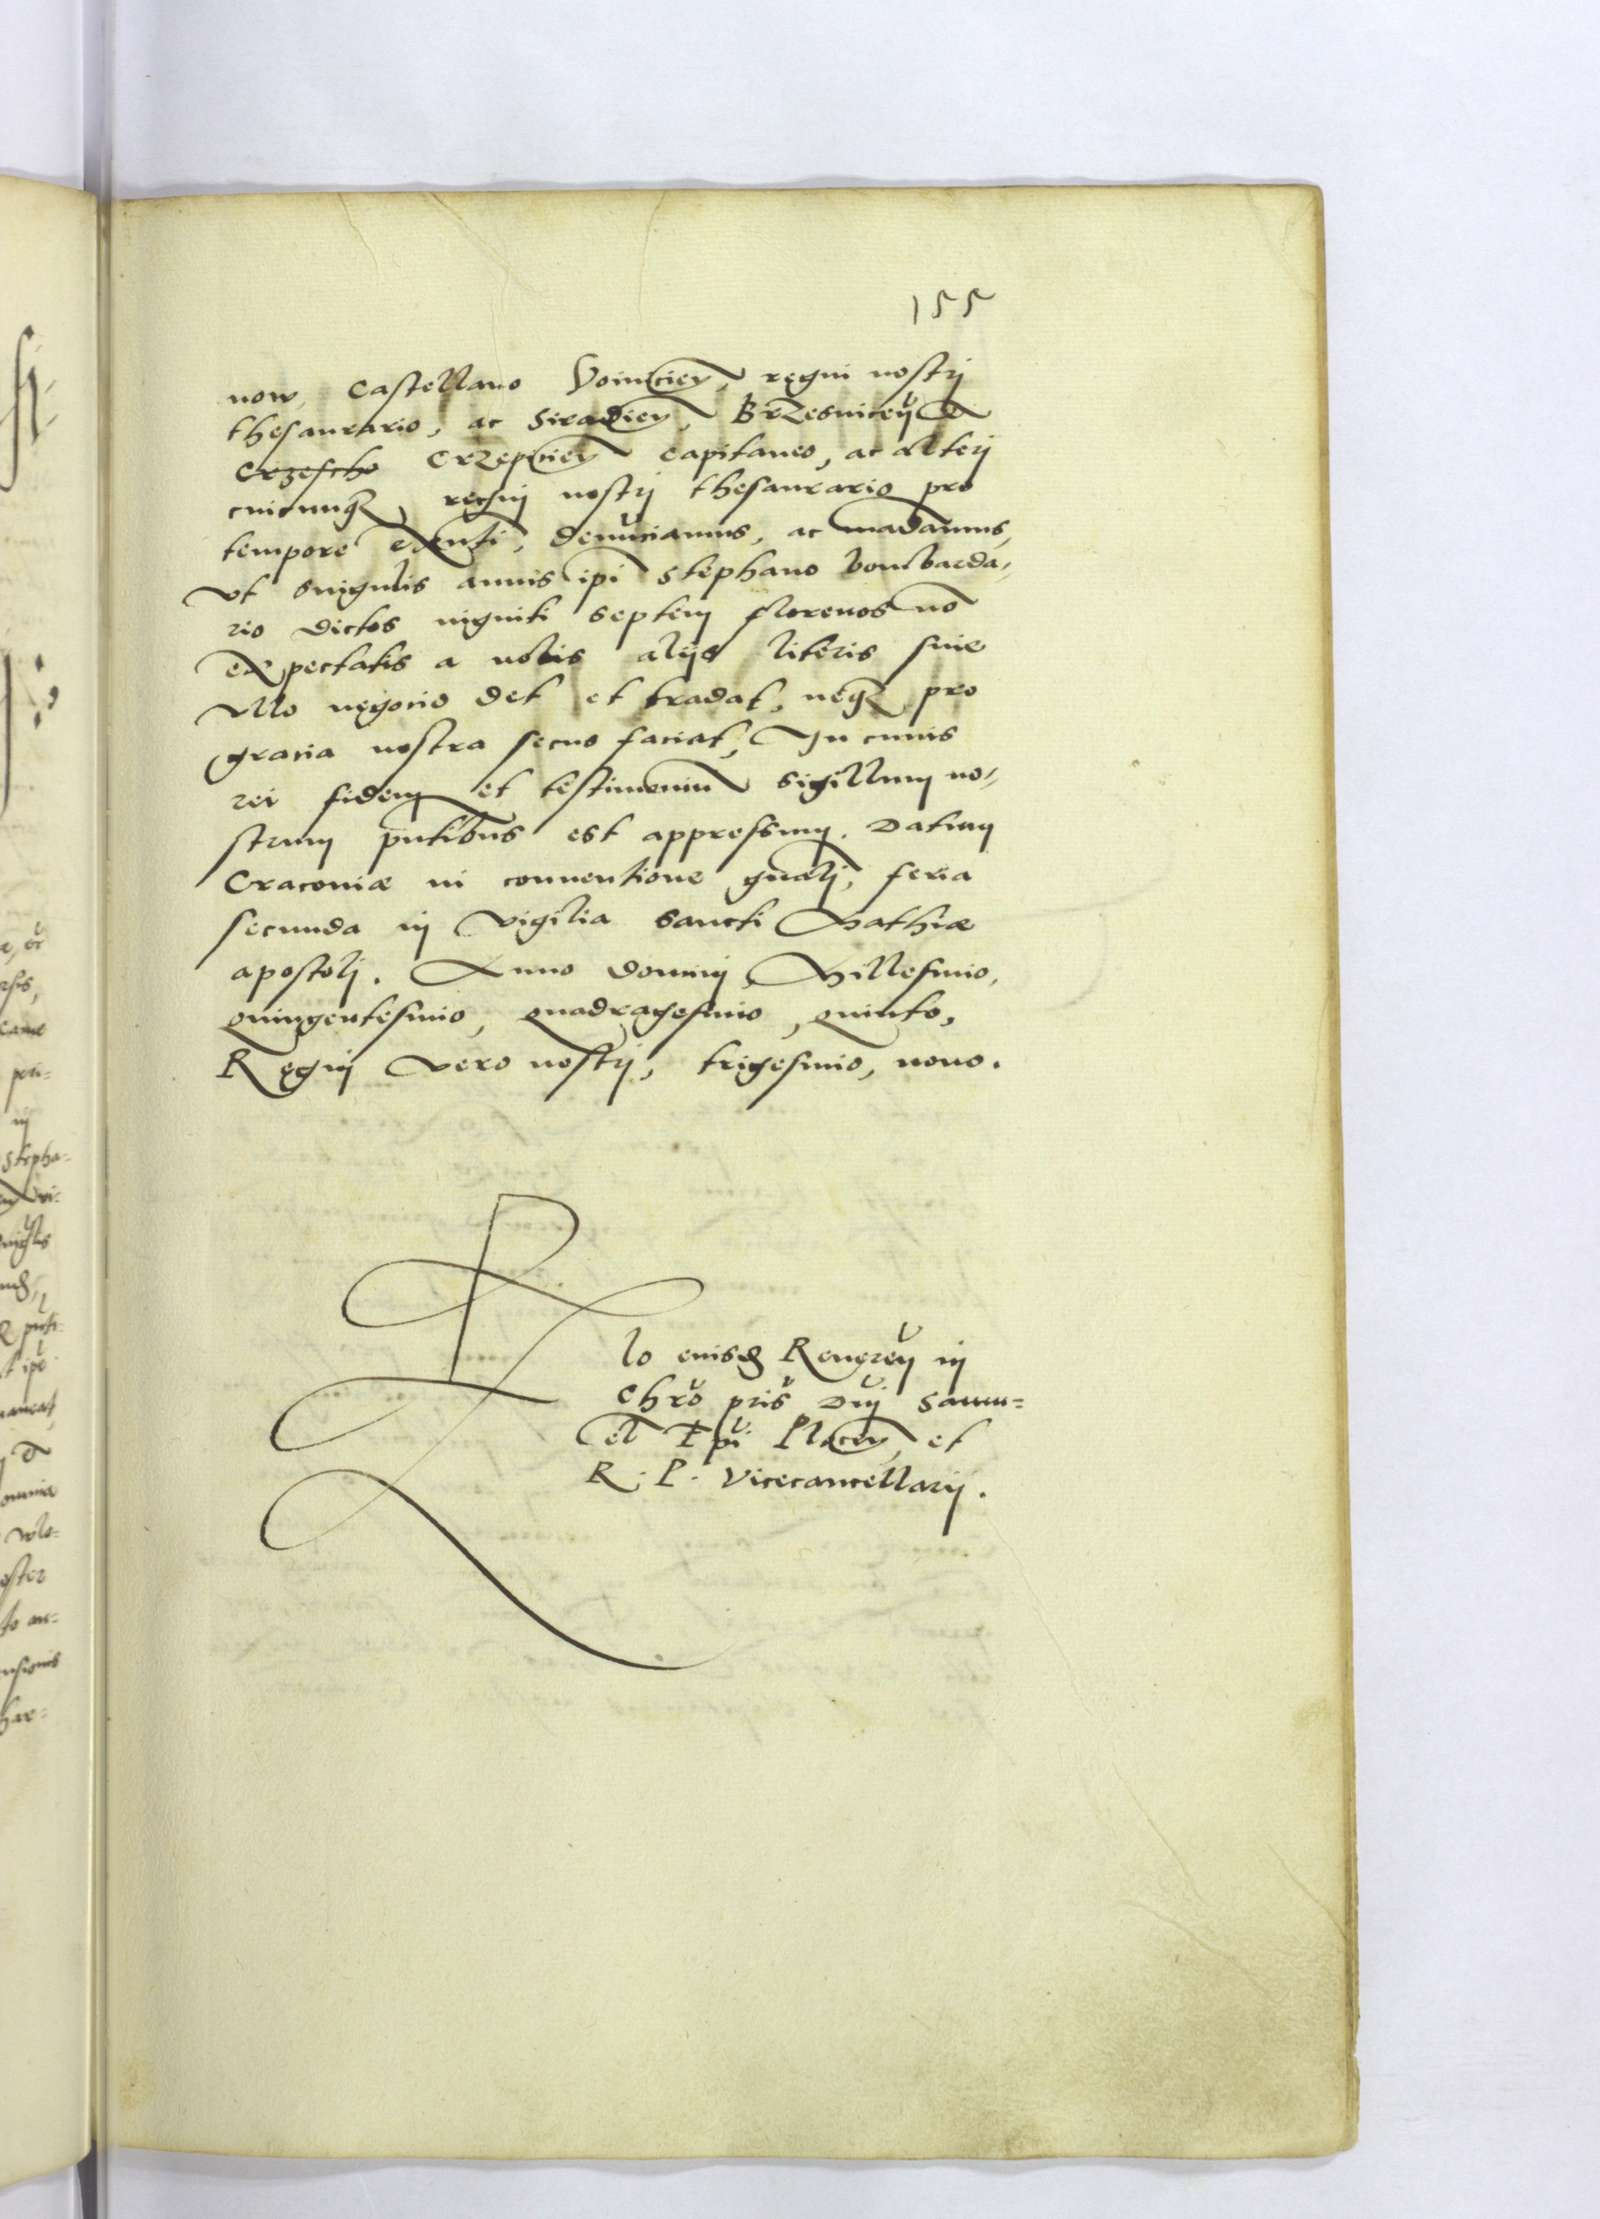 155
now, Castellano Voinicieñ, regni nostrj
thesaurario, ac Siradieñ, Brzesniceñ &
Crzescho Crzepiцieñ Capitaneo, ac alterj
cuicunq3, regnj nostrj thesaurario pro
tempore exñti, denūciamus, ac mādamus,
vt singulis annis ipi Stephano bombarda,
rio dictos viginti septem florenos nō
expectatis a nobis alijs literis sine
vllo negocio det et tradat, neq3 pro
gracia nostra secus faciat, In cuius
rei fidem et testimoniū Sigillum no,
strum pñtibus est appressum. Datum
Cracoviæ in conuentione gñalj, feria
secunda in vigilia Sancti Mathiæ
apostolj. Anno dominj Millesimo,
quingentesimo, quadragesimo, quinto,
Regnj vero nostrj, trigesimo, nono.
Rlo eiusd Reuereñ in
Chro pris Dnj Samu=
el Epi Ploceñ, et
R. P. Vicecancellarij.